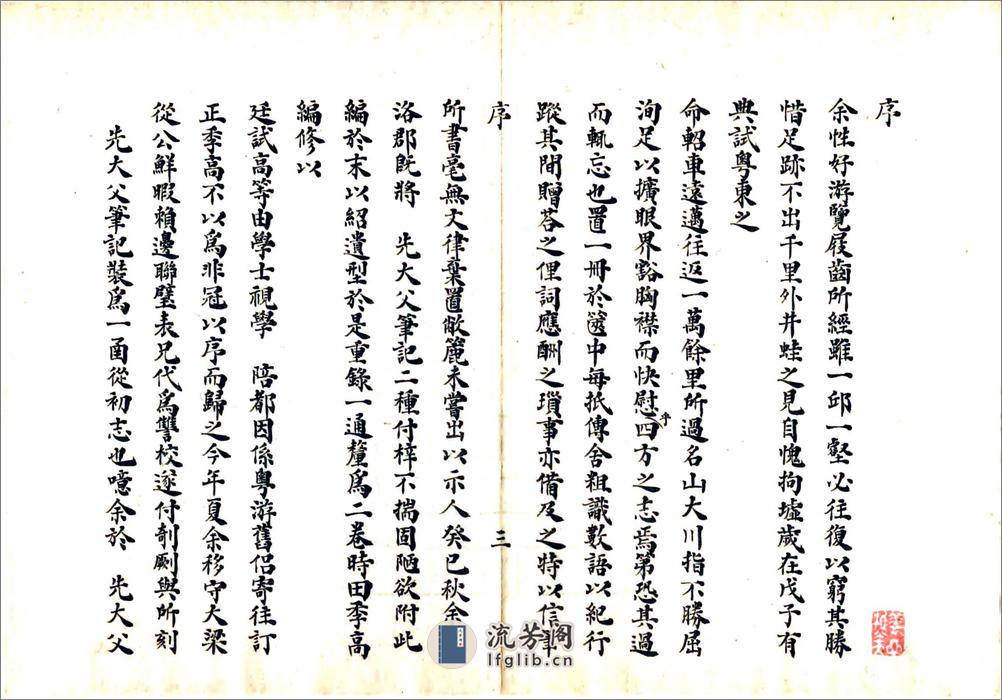 序
余性好游覽屐齒所經雖一邱一壑必往復以窮其勝
惜足跡不出千里外井蛙之見自愧拘墟歲在戊子有
典試粵東之
命軺車遠邁往返一萬餘里所過名山大川指不勝屈
洵足以擴眼界豁胸襟而快慰乎四方之志焉第恐其過
而輒忘也置一冊於篋中每抵傳舍粗識數語以紀行
蹤其間贈荅之俚詞應酬之瑣事亦備及之特以信筆
序
三
所書毫無文律棄置敝簏未嘗出以示人癸巳秋余
洛郡旣將 先大父筆記二種付梓不揣固陋欲附此
編於末以紹遺型於是重錄一通釐爲二卷時田季高
編修以
廷試高等由學士視學 陪都因係粵游舊侶寄往訂
正季高不以爲非冠以序而歸之今年夏余移守大梁
從公鮮暇賴邊聯璧表兄代爲讐校遂付剞劂與所刻
先大父筆記裝爲一函從初志也噫余於 先大父
流芳閣
lfglib.cn